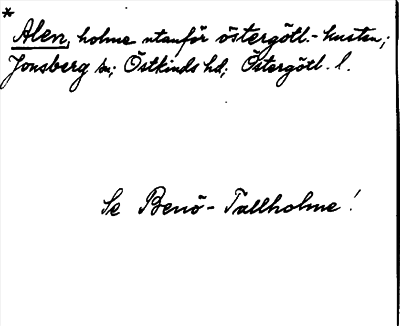 *
Alen, holme utanför östergötl.-kusten;
Jonsberg sn; Östkinds hd; Östergötl. l.
Se Benö-Tallholme!